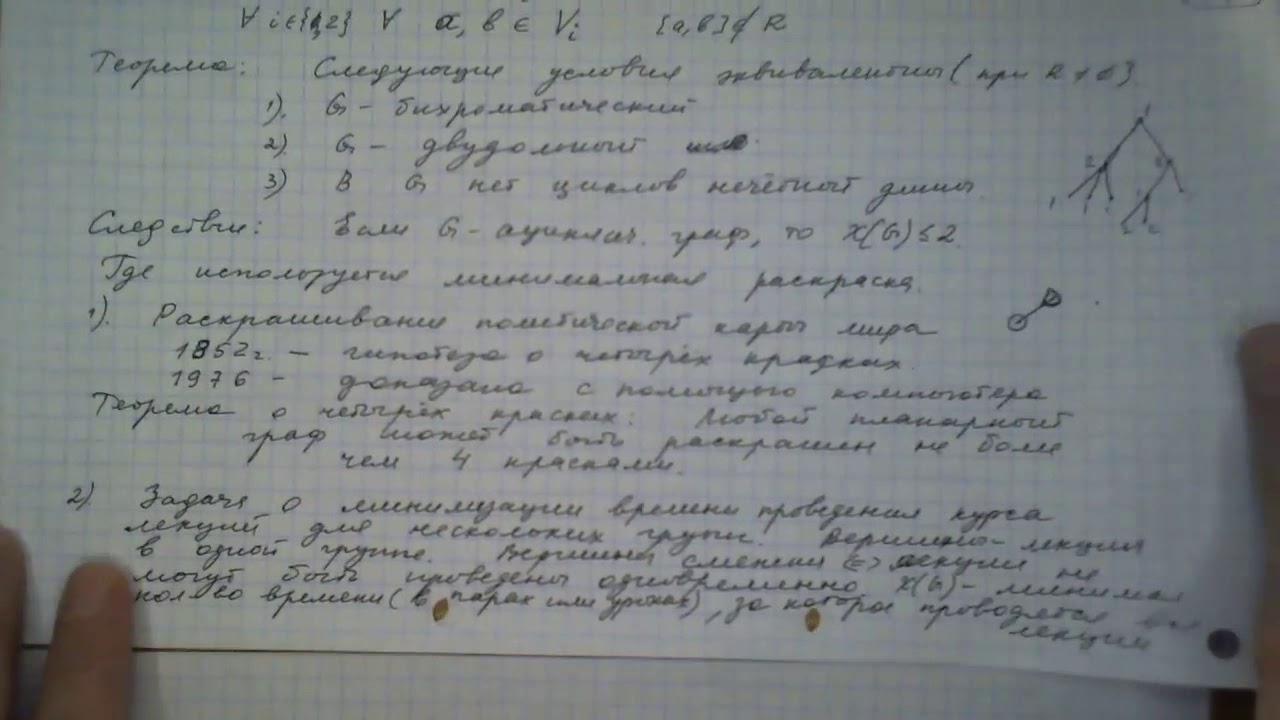 ∀ i∈{1,2} ∀ a, b ∈ Vᵢ {a,b}∉R
Теорема: Следующие условия эквивалентны (при R ≠ ∅)
1). G - бихроматический
2) G - двудольный
3) В G нет циклов нечётной длины.
Следствие: Если G - ациклич. граф, то χ(G) ≤ 2.
Где используется минимальная раскраска.
1). Раскрашивание политической карты мира
1852г. - гипотеза о четырёх красках.
1976 - доказана с помощью компьютера
Теорема о четырёх красках: Любой планарный
граф может быть раскрашен не более
чем 4 красками.
2) Задача о минимизации времени проведения курса
лекций для нескольких групп. Вершины - лекции
в одной группе. Вершины смежны ⇔ лекции не
могут быть проведены одновременно χ(G) - минимал
кол-во времени (в парах или уроках), за которое проводятся все
лекции